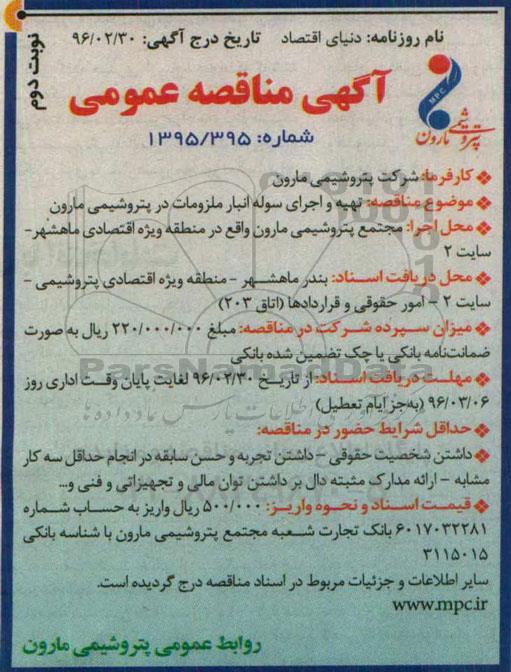 نام روزنامه: دنیای اقتصاد تاریخ درج آگهی: ۹۶/۰۲/۳۰
نوبت دوم
MPC
پتروشیمی مارون
آگهی مناقصه عمومی
شماره: ۱۳۹۵/۳۹۵
❖ کارفرما: شرکت پتروشیمی مارون
❖ موضوع مناقصه: تهیه و اجرای سوله انبار ملزومات در پتروشیمی مارون
❖ محل اجرا: مجتمع پتروشیمی مارون واقع در منطقه ویژه اقتصادی ماهشهر-
سایت ۲
❖ محل دریافت اسناد: بندر ماهشهر - منطقه ویژه اقتصادی پتروشیمی -
سایت ۲ - امور حقوقی و قراردادها (اتاق ۲۰۳)
❖ میزان سپرده شرکت در مناقصه: مبلغ ۲۲۰/۰۰۰/۰۰۰ ریال به صورت
ضمانت‌نامه بانکی یا چک تضمین شده بانکی
ParsNamadData
❖ مهلت دریافت اسناد: از تاریخ ۹۶/۰۲/۳۰ لغایت پایان وقت اداری روز
۹۶/۰۳/۰۶ (به‌جز ایام تعطیل)
❖ حداقل شرایط حضور در مناقصه:
❖ داشتن شخصیت حقوقی - داشتن تجربه و حسن سابقه در انجام حداقل سه کار
مشابه - ارائه مدارک مثبته دال بر داشتن توان مالی و تجهیزاتی و فنی و...
❖ قیمت اسناد و نحوه واریز: ۵۰۰/۰۰۰ ریال واریز به حساب شماره
۶۰۱۷۰۳۲۲۸۱ بانک تجارت شعبه مجتمع پتروشیمی مارون با شناسه بانکی
۳۱۱۵۰۱۵
سایر اطلاعات و جزئیات مربوط در اسناد مناقصه درج گردیده است.
www.mpc.ir
روابط عمومی پتروشیمی مارون